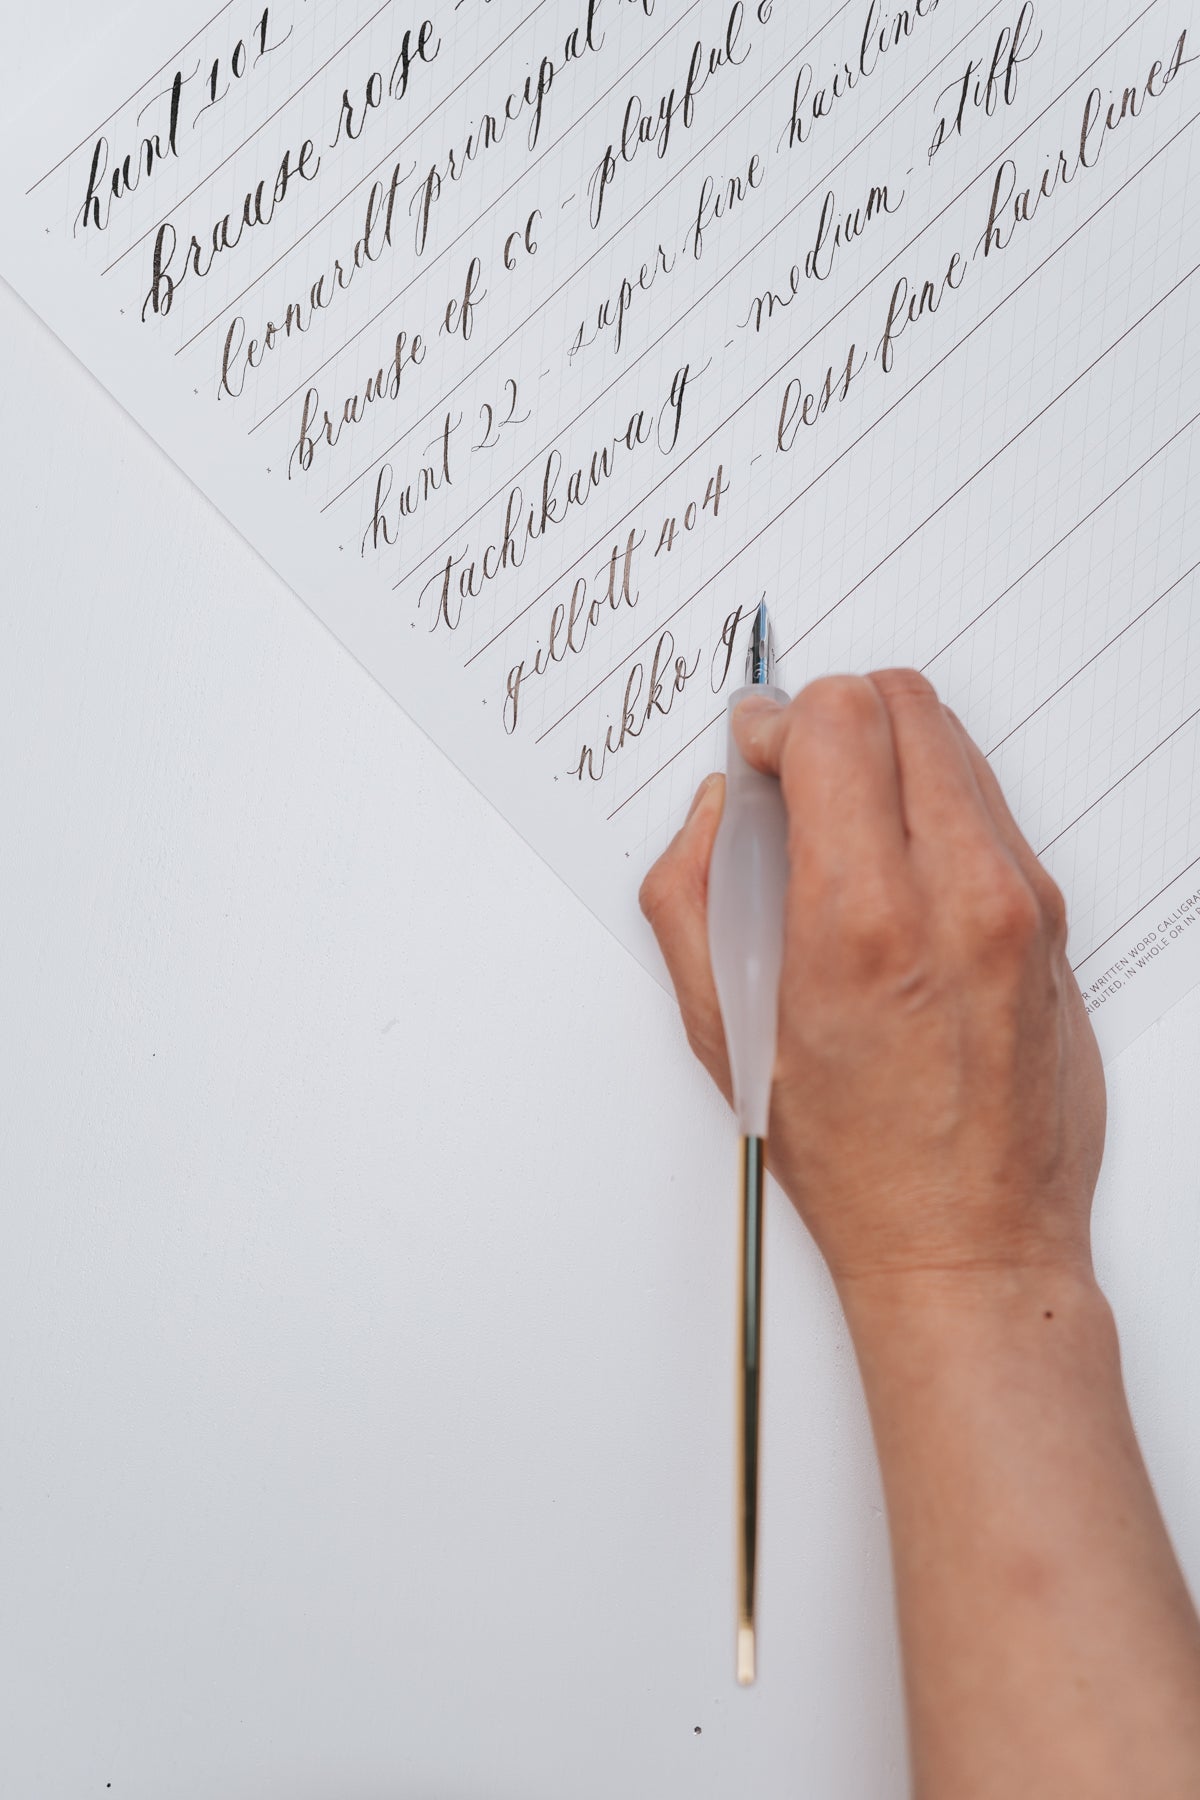 hunt 101
brause rose -
leonardt principal
brause ef 66 - playful &
hunt 22 - super fine hairlines
tachikawa g - medium - stiff
gillott 404 - less fine hairlines
nikko g
WRITTEN WORD
IN WHOLE OR IN